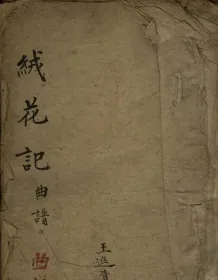 絨花記曲譜
王進